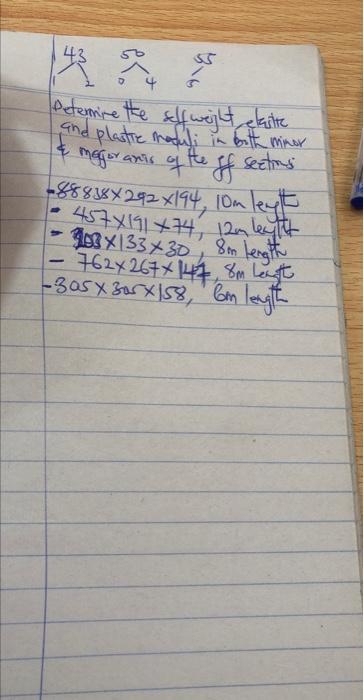 43 50 55
1 2 0 4 5
Determine the selfweight, elastic
and plastic moduli in both minor
& major axis of the ff sections
- 838 x 292 x 194, 10m length
- 457 x 191 x 74, 12m length
- 203 x 133 x 30, 8m length
- 762 x 267 x 147, 8m length
- 305 x 305 x 158, 6m length